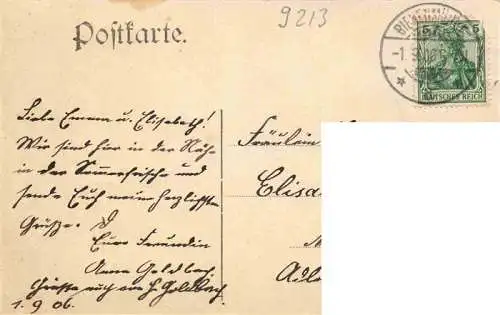 9213
Postkarte.
5
DEUTSCHES REICH
Liebe Emma u. Elisabeth!
Wir sind hier in der Nähe
in der Sommerfrische und
senden Euch unsere herzlichsten
Grüße.
Eure Freundin
Anna Goldbach.
Grüße auch von H. Goldbach
1.9.06.
Fräulein
Elisa
Adl